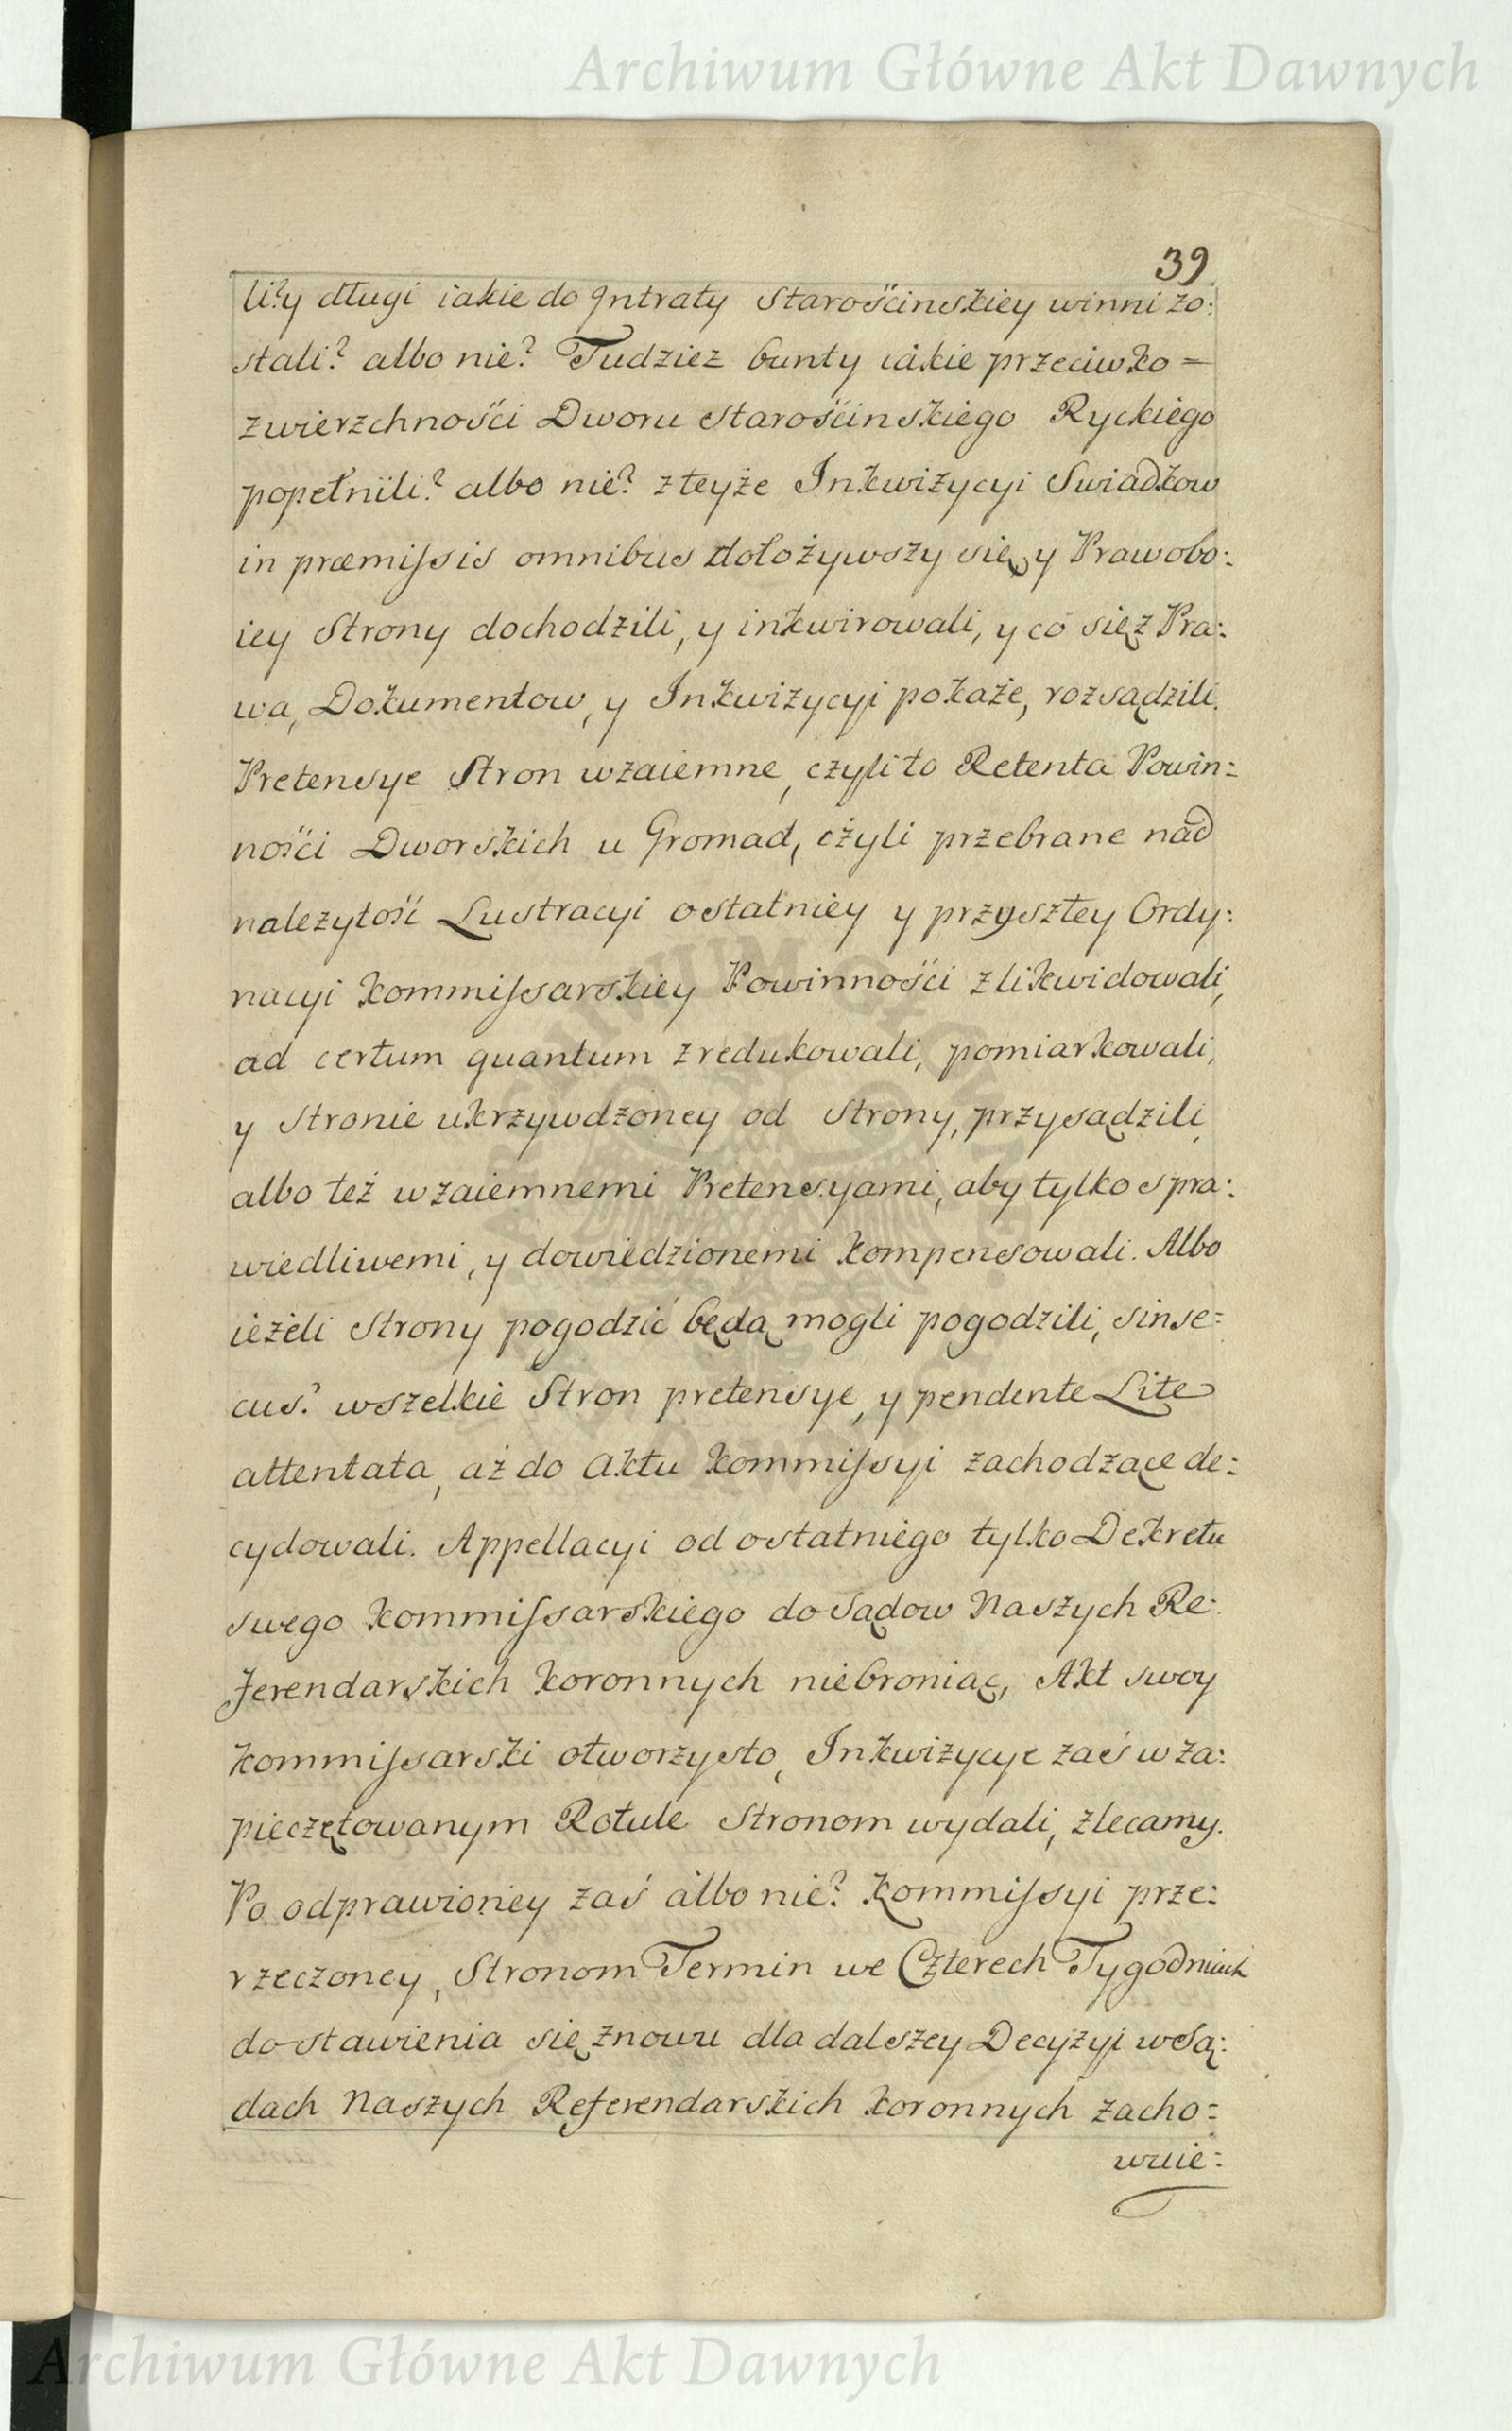 Archiwum Główne Akt Dawnych
39
li? y długi iakie do Intraty Starościnskiey winni zo:
stali? albo nie? Tudziez bunty iakie przeciwko =
zwierzchności Dworu Starościnskiego Ryckiego
popełnili? albo nie? z teyże Inkwizycyi Swiadkow
in præmissis omnibus dołożywszy się, y Praw obo:
iey Strony dochodzili, y inkwirowali, y co się z Pra:
wa, Dokumentow, y Inkwizycyi pokaże, rozsądzili.
Pretensye Stron wzaiemne, czyli to Retenta Powin=
ności Dworskich u Gromad, czyli przebrane nad
nalezytość Lustracyi ostatniey y przyszłey Ordy:
nacyi Kommissarskiey Powinności zlikwidowali,
ad certum quantum zredukowali, pomiarkowali,
y Stronie ukrzywdzoney od Strony, przysądzili,
albo też wzaiemnemi Pretensyami, aby tylko spra:
wiedliwemi, y dowiedzionemi kompensowali. Albo
ieżeli Strony pogodzić będą mogli pogodzili, sin se=
cus? wszelkie Stron pretensye, y pendente Lite
attentata, aż do Aktu Kommissyi zachodzące de:
cydowali. Appellacyi od ostatniego tylko Dekretu
swego Kommissarskiego do Sądow Naszych Re:
ferendarskich Koronnych niebroniąc, Akt swoy
Kommissarski otworzysto, Inkwizycye zaś w za:
pieczętowanym Rotule Stronom wydali, zlecamy.
Po odprawioney zaś albo nie? Kommissyi prze:
rzeczoney, Stronom Termin we Czterech Tygodniach
do stawienia się znowu dla dalszey Decyzyi w Są:
dach Naszych Referendarskich Koronnych zacho=
wuie:
Archiwum Główne Akt Dawnych